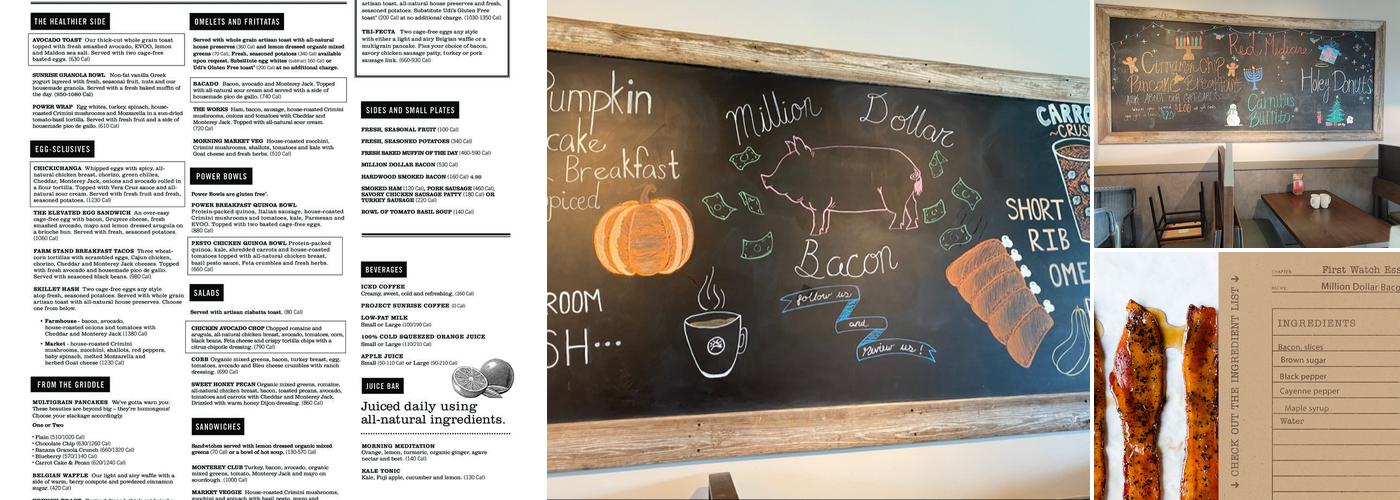 THE HEALTHIER SIDE
AVOCADO TOAST Our thick-cut whole grain toast
topped with fresh smashed avocado, EVOO, lemon
and Maldon sea salt. Served with two cage-free
basted eggs. (630 Cal)
SUNRISE GRANOLA BOWL Non-fat vanilla Greek
yogurt layered with fresh, seasonal fruit, nuts and our
housemade granola. Served with a fresh baked muffin of
the day. (950-1080 Cal)
POWER WRAP Egg whites, turkey, spinach, house-
roasted Crimini mushrooms and Mozzarella in a sun-dried
tomato-basil tortilla. Served with fresh fruit and a side of
housemade pico de gallo. (610 Cal)
EGG-SCLUSIVES
CHICKICHANGA Whipped eggs with spicy, all-
natural chicken breast, chorizo, green chilies,
Cheddar, Monterey Jack, onions and avocado rolled in
a flour tortilla. Topped with Vera Cruz sauce and all-
natural sour cream. Served with fresh fruit and fresh,
seasoned potatoes. (1230 Cal)
THE ELEVATED EGG SANDWICH An over-easy
cage-free egg with bacon, Gruyere cheese, fresh
smashed avocado, mayo and lemon dressed arugula on
a brioche bun. Served with fresh, seasoned potatoes.
(1060 Cal)
FARM STAND BREAKFAST TACOS Three wheat-
corn tortillas with scrambled eggs, Cajun chicken,
chorizo, Cheddar and Monterey Jack cheeses. Topped
with fresh avocado and housemade pico de gallo.
Served with seasoned black beans. (980 Cal)
SKILLET HASH Two cage-free eggs any style
atop fresh, seasoned potatoes. Served with whole grain
artisan toast with all-natural house preserves. Choose
one from below.
• Farmhouse - bacon, avocado,
house-roasted onions and tomatoes with
Cheddar and Monterey Jack (1380 Cal)
• Market - house-roasted Crimini
mushrooms, zucchini, shallots, red peppers,
baby spinach, melted Mozzarella and
herbed Goat cheese (1230 Cal)
FROM THE GRIDDLE
MULTIGRAIN PANCAKES We've gotta warn you:
These beauties are beyond big – they're humongous!
Choose your stackage accordingly.
One or Two
• Plain (510/1020 Cal)
• Chocolate Chip (630/1260 Cal)
• Banana Granola Crunch (660/1320 Cal)
• Blueberry (570/1140 Cal)
• Carrot Cake & Pecan (620/1240 Cal)
BELGIAN WAFFLE Our light and airy waffle with a
side of warm, berry compote and powdered cinnamon
sugar. (420 Cal)
OMELETS AND FRITTATAS
Served with whole grain artisan toast with all-natural
house preserves (360 Cal) and lemon dressed organic mixed
greens (70 Cal). Fresh, seasoned potatoes (340 Cal) available
upon request. Substitute egg whites (subtract 160 Cal) or
Udi's Gluten Free Toast* (200 Cal) at no additional charge.
BACADO Bacon, avocado and Monterey Jack. Topped
with all-natural sour cream and served with a side of
housemade pico de gallo. (740 Cal)
THE WORKS Ham, bacon, sausage, house-roasted Crimini
mushrooms, onions and tomatoes with Cheddar and
Monterey Jack. Topped with all-natural sour cream.
(720 Cal)
MORNING MARKET VEG House-roasted zucchini,
Crimini mushrooms, shallots, tomatoes and kale with
Goat cheese and fresh herbs. (510 Cal)
POWER BOWLS
Power Bowls are gluten free*.
POWER BREAKFAST QUINOA BOWL
Protein-packed quinoa, Italian sausage, house-roasted
Crimini mushrooms and tomatoes, kale, Parmesan and
EVOO. Topped with two basted cage-free eggs.
(880 Cal)
PESTO CHICKEN QUINOA BOWL Protein-packed
quinoa, kale, shredded carrots and house-roasted
tomatoes topped with all-natural chicken breast,
basil pesto sauce, Feta crumbles and fresh herbs.
(660 Cal)
SALADS
Served with artisan ciabatta toast. (80 Cal)
CHICKEN AVOCADO CHOP Chopped romaine and
arugula, all-natural chicken breast, avocado, tomatoes, corn,
black beans, Feta cheese and crispy tortilla chips with a
citrus chipotle dressing. (790 Cal)
COBB Organic mixed greens, bacon, turkey breast, egg,
tomatoes, avocado and Bleu cheese crumbles with ranch
dressing. (690 Cal)
SWEET HONEY PECAN Organic mixed greens, romaine,
all-natural chicken breast, bacon, toasted pecans, avocado,
tomatoes and carrots with Cheddar and Monterey Jack.
Drizzled with warm honey Dijon dressing. (860 Cal)
SANDWICHES
Sandwiches served with lemon dressed organic mixed
greens (70 Cal) or a bowl of hot soup. (130-570 Cal)
MONTEREY CLUB Turkey, bacon, avocado, organic
mixed greens, tomato, Monterey Jack and mayo on
sourdough. (1000 Cal)
MARKET VEGGIE House-roasted Crimini mushrooms,
artisan toast, all-natural house preserves and fresh,
seasoned potatoes. Substitute Udi's Gluten Free
Toast* (200 Cal) at no additional charge. (1030-1350 Cal)
TRI-FECTA Two cage-free eggs any style
with either a light and airy Belgian waffle or a
multigrain pancake. Plus your choice of bacon,
savory chicken sausage patty, turkey or pork
sausage link. (660-930 Cal)
SIDES AND SMALL PLATES
FRESH, SEASONAL FRUIT (100 Cal)
FRESH, SEASONED POTATOES (340 Cal)
FRESH BAKED MUFFIN OF THE DAY (460-590 Cal)
MILLION DOLLAR BACON (530 Cal)
HARDWOOD SMOKED BACON (160 Cal) 4.99
SMOKED HAM (120 Cal), PORK SAUSAGE (460 Cal),
SAVORY CHICKEN SAUSAGE PATTY (180 Cal) OR
TURKEY SAUSAGE (220 Cal)
BOWL OF TOMATO BASIL SOUP (140 Cal)
BEVERAGES
ICED COFFEE
Creamy, sweet, cold and refreshing. (160 Cal)
PROJECT SUNRISE COFFEE (0 Cal)
LOW-FAT MILK
Small or Large (100/190 Cal)
100% COLD SQUEEZED ORANGE JUICE
Small or Large (110/210 Cal)
APPLE JUICE
Small (50-110 Cal) or Large (90-210 Cal)
JUICE BAR
Juiced daily using
all-natural ingredients.
MORNING MEDITATION
Orange, lemon, turmeric, organic ginger, agave
nectar and beet. (140 Cal)
KALE TONIC
Kale, Fuji apple, cucumber and lemon. (130 Cal)
Pumpkin
cake
Breakfast
piced
ROOM
SH...
Million Dollar
Bacon
follow us
and
Review us!
CARRO
~CRUS
SHORT
RIB
OME
Red Medicine
Cinnamon Chip
Pancake Breakfast
Haley Donuts
Carnitas
Burrito
CHAPTER: First Watch Ess
RECIPE: Million Dollar Baco
CHECK OUT THE INGREDIENT LIST
INGREDIENTS
Bacon, slices
Brown sugar
Black pepper
Cayenne pepper
Maple syrup
Water